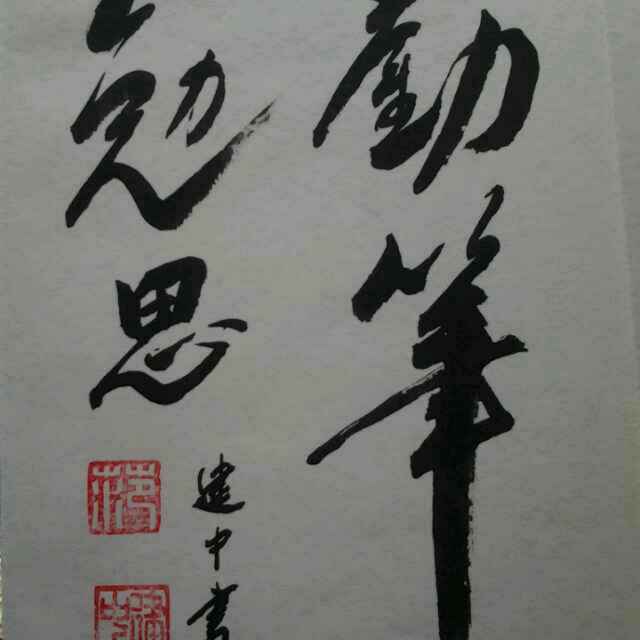 勤筆
勉思
建中書